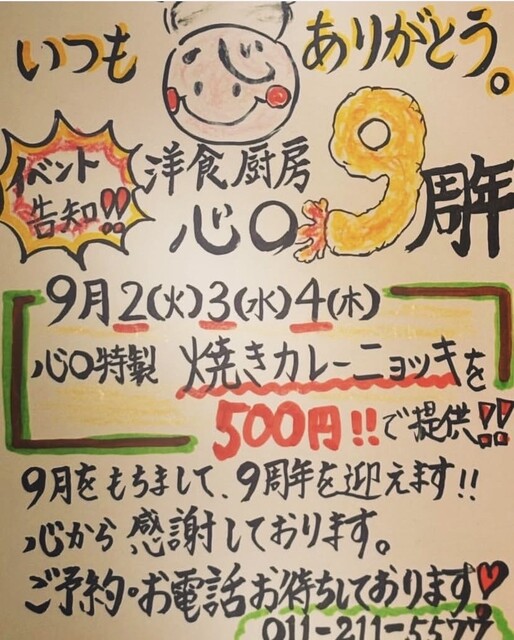 いつも ありがとう。
イベント
告知!!
洋食厨房
心〇 9周年
9月2(火)3(水)4(木)
心〇特製 焼きカレーニョッキを
500円!!で提供!!
9月をもちまして、9周年を迎えます!!
心から感謝しております。
ご予約・お電話お待ちしております